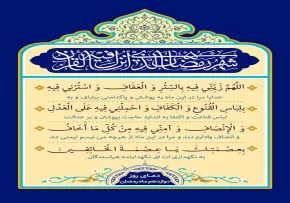 شهر رمضان الذی انزل فیه القرآن
اَللّهُمَّ زَیِّنّی فیهِ بِالسِّتْرِ وَ الْعَفافِ وَ اسْتُرْنی فیهِ
خدایا مرا در این ماه به پوشش و پاکدامنی بیارای و به
بِلِباسِ الْقُنُوعِ وَ الْکَفافِ وَ احْمِلْنی فیهِ عَلَی الْعَدْلِ
لباس قناعت و اکتفا به اندازه حاجت بپوشان و بر عدالت
وَ الْاِنْصافِ وَ آمِنّی فیهِ مِنْ کُلِّ ما اَخافُ
و انصاف وادارم نما و مرا در این ماه از هرچه می ترسم ایمنی ده
بِعِصْمَتِکَ یا عِصْمَةَ الْخائِفینَ
به نگهداری ات ای نگهدارنده هراسندگان
دعای روز
دوازدهم ماه رمضان